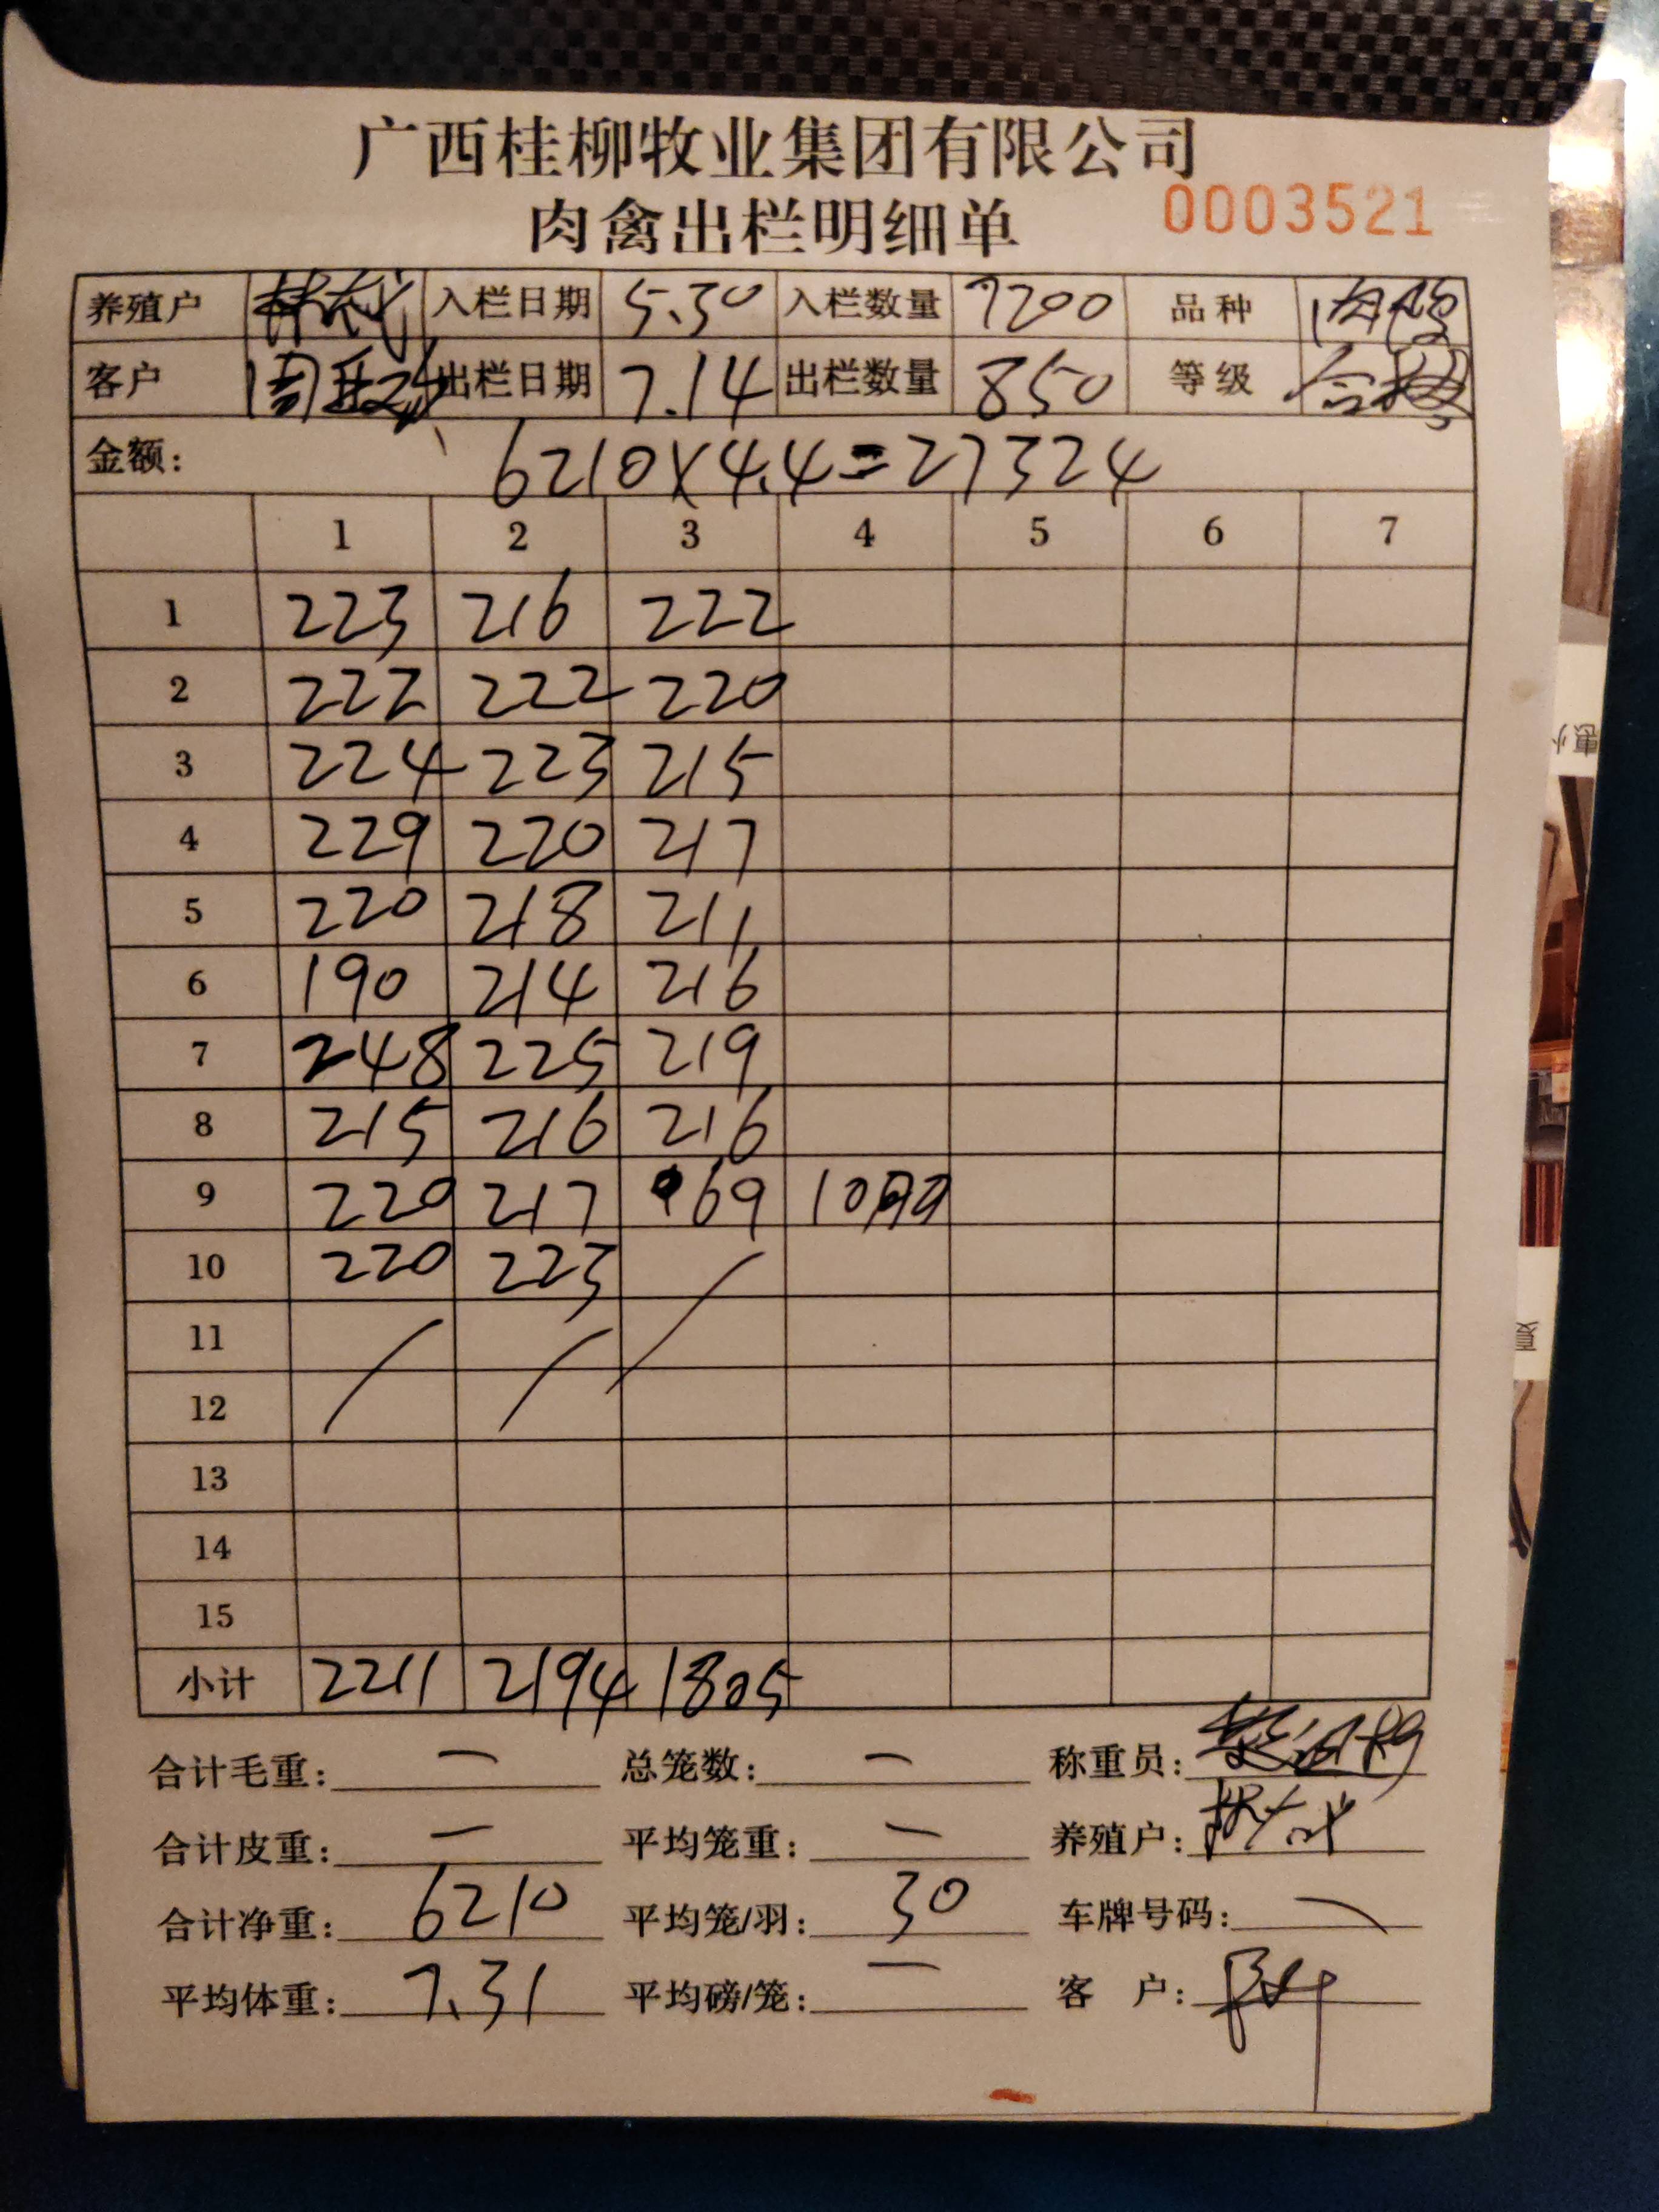 广西桂柳牧业集团有限公司
肉禽出栏明细单 0003521
养殖户 林 入栏日期 5.30 入栏数量 7200 品种 肉鸭
客户 周 出栏日期 7.14 出栏数量 850 等级 合格
金额: 6210×4.4=27324
1 2 3 4 5 6 7
1 223 216 222
2 222 222 220
3 224 223 215
4 229 220 217
5 220 218 211
6 190 214 216
7 248 225 219
8 215 216 216
9 220 217 69
10 220 223
11
12
13
14
15
小计 2211 2194 1805
合计毛重: — 总笼数: — 称重员:
合计皮重: — 平均笼重: — 养殖户: 林
合计净重: 6210 平均笼/羽: 30 车牌号码: —
平均体重: 7.31 平均磅/笼: — 客 户:
惠小
夏